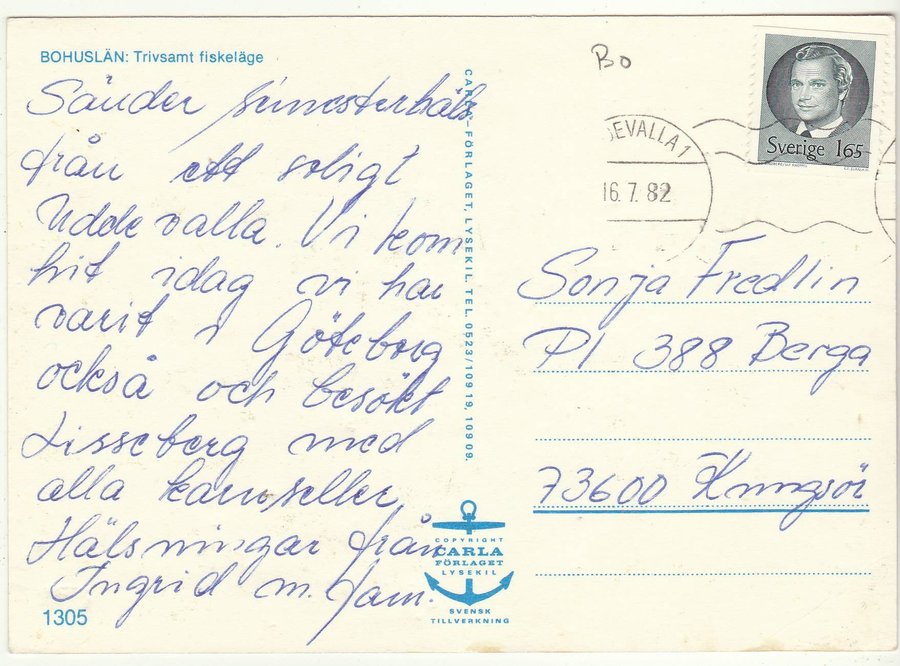 BOHUSLÄN: Trivsamt fiskeläge
Sänder semesterhäls
från ett soligt
Uddevalla. Vi kom
hit idag vi har
varit i Göteborg
också och besökt
Lisseberg med
alla karuseller
Hälsningar från
Ingrid m. fam.
1305
CARLA-FÖRLAGET, LYSEKIL TEL. 0523/10919, 10909.
COPYRIGHT
CARLA
FÖRLAGET
LYSEKIL
SVENSK
TILLVERKNING
Bo
DEVALLA 1
16.7.82
Sverige 165
Sonja Fredlin
Pl 388 Berga
73600 Kungsör